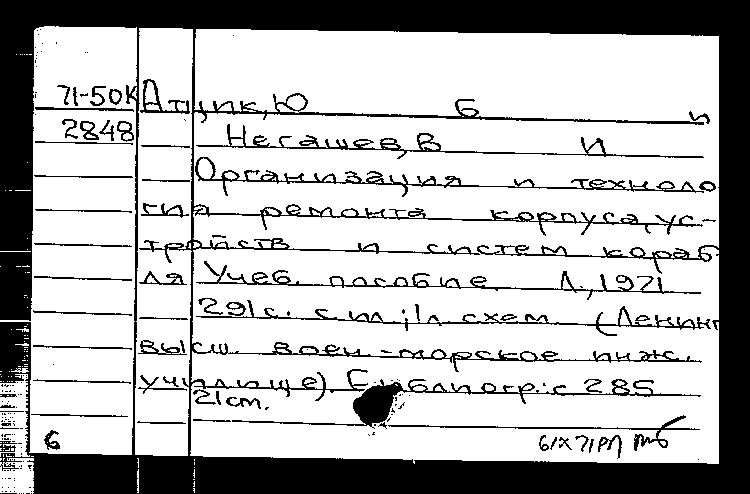 71-50К Ацик, Ю Б и
2848 Негашев, В И
Организация и техноло
гия ремонта корпуса, ус-
тройств и систем кораб
ля Учеб. пособие. Л., 1971
291с. с ил; 1л схем (Ленинг
высш. воен.-морское инж.
училище). Библиогр.: с 285
21cm.
6